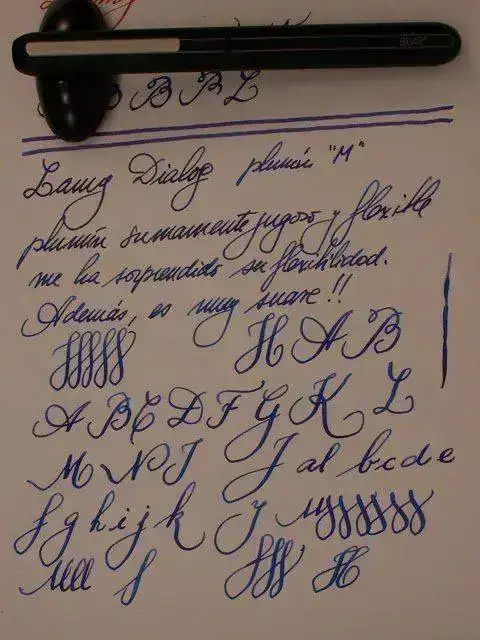 B B B L
Lamy Dialog plumín "M"
plumín sumamente jugoso y flexible
me ha sorprendido su flexibilidad.
Además, es muy suave!!
H A B
A B C D F G K L
M N J J al bcde
f g h i j k J
H